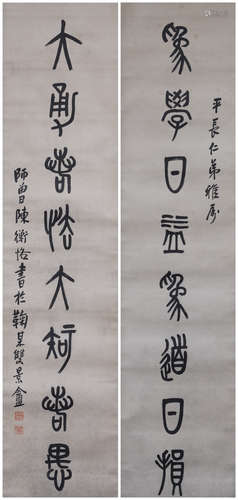 平長仁弟雅屬
爲學日益爲道日損
大勇若怯大知若愚
師曾陳衡恪書於鞠某雙景盦